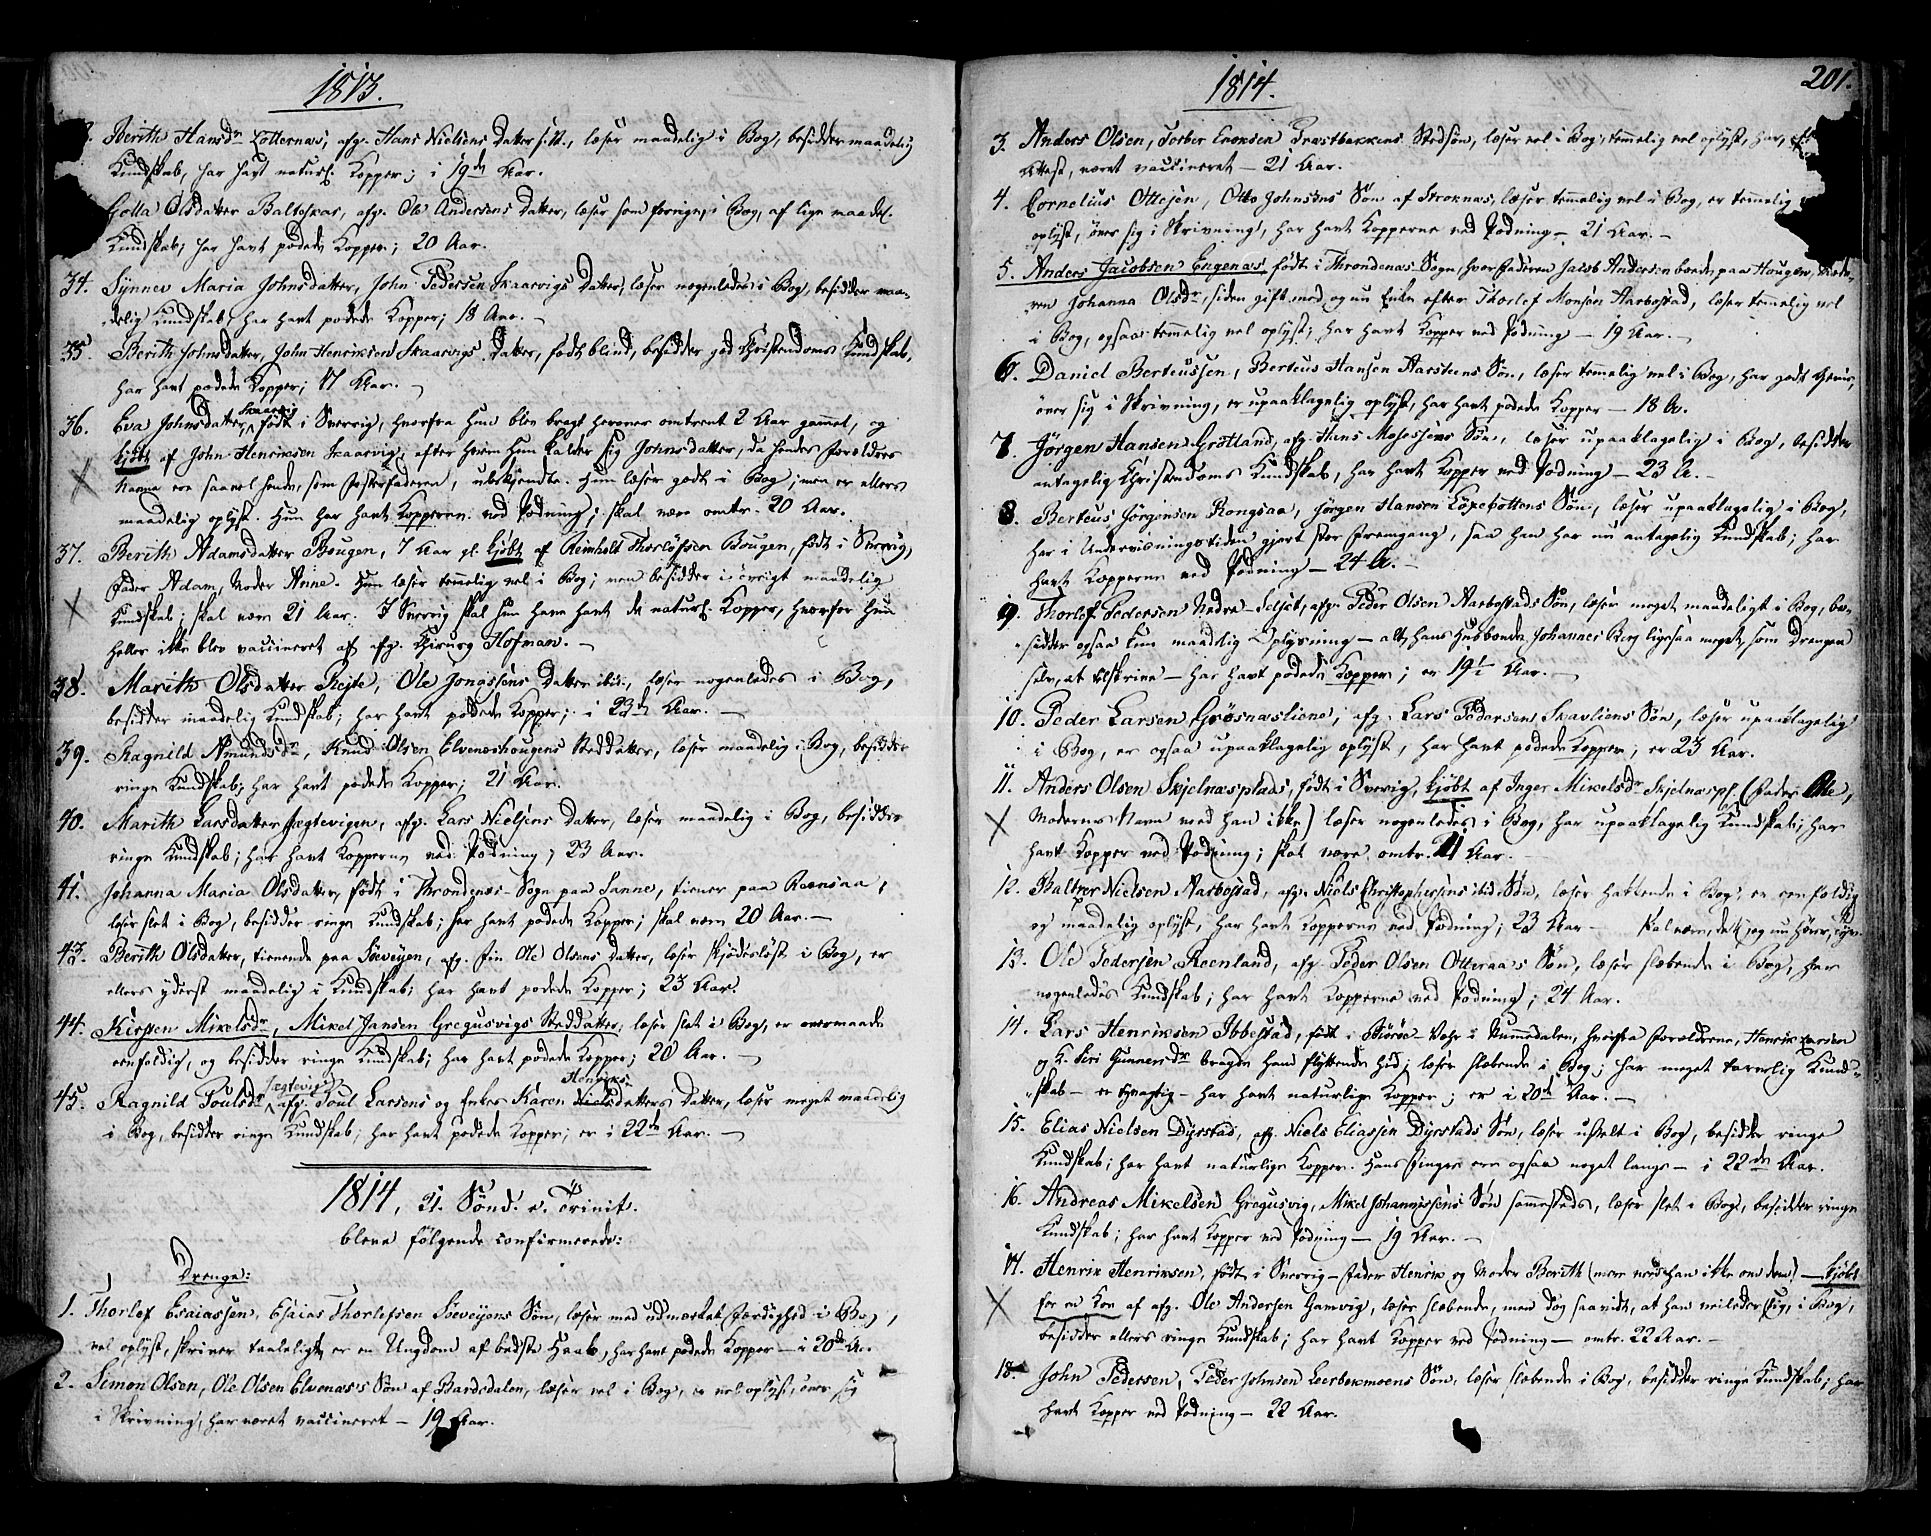 1813.
Berith Hansdr Lotternæs, afg. Hans Nielsens Datter sstds., læser maadelig i Bog, besidder maadelig
Kundskab, har havt naturl. Kopper; i 19de Aar.
Golla Olsdatter Baltoskar, afg. Ole Andersens Datter, læser som forrige, i Bog, af lige maadel.
Kundskab; har havt podede Kopper; 20 Aar.
34. Synnev Maria Johnsdatter, John Pedersen Skaarvigs Datter, læser nogenledes i Bog, besidder maa-
delig Kundskab, har havt podede Kopper; 18 Aar.
35. Berith Johnsdatter, John Henriksen Skaarvigs Datter, født blind, besidder god Christendoms Kundskab,
har havt podede Kopper; 17 Aar.
36. Eva Johnsdatter, Skaarvig født i Sverrig, hvorfra hun blev bragt herover omtrent 2 Aar gammel, og
kjøbt af John Henriksen Skaarvig, efter hvem hun kalder sig Johnsdatter, da hendes Forældres
Navne ere saavel hende, som Fosterfaderen, ubekjendte. Hun læser godt i Bog; men er ellers
maadelig oplyst. Hun har havt Kopperne ved Podning; skal være omtr. 20 Aar.
37. Berith Adamsdatter Bougen, 7 Aar gl. kjøbt af Reinholt Thorløfsen Bougen, født i Sverrig,
Fader Adam, Moder Anne. Hun læser temmelig vel i Bog; men besidder i øvrigt maadelig
Kundskab; skal være 21 Aar. I Sverrig skal hun have havt de naturl. Kopper, hvorfor hun
heller ikke blev vaccineret af afg. Chirurg Hofman.
38. Marith Olsdatter Rejte, Ole Jonassens Datter ibid., læser nogenledes i Bog,
besidder maadelig Kundskab; har havt podede Kopper; i 23de Aar.
39. Ragnild Amundsdr, Knud Olsen Elvenæshougens Steddatter, læser maadelig i Bog, besidder
ringe Kundskab; har havt podede Kopper; 21 Aar.
40. Marith Larsdatter Jægtevigen, afg. Lars Nielsens Datter, læser maadelig i Bog, besidder
ringe Kundskab; har havt Kopperne ved Podning; 23 Aar.
41. Johanna Maria Olsdatter, født i Throndenæs-Sogn paa Sanne, tiener paa Roensaa,
læser slet i Bog, besidder ringe Kundskab; har havt podede Kopper; skal være 20 Aar.
43. Berith Olsdatter, tienende paa Søeveyen, afg. Fin Ole Olsens Datter, læser skjødesløst i Bog, er
ellers yderst maadelig i Kundskab; har havt podede Kopper; 23 Aar.
44. Kirsten Mikelsdr, Mikel Jansen Gregusvigs Steddatter; læser slet i Bog, er overmaade
eenfoldig, og besidder ringe Kundskab; har havt podede Kopper; 20 Aar.
45. Ragnild Poulsdr Jægtevigen, afg. Poul Larsens og Enkes Karen Henriks datters Datter, læser meget maadelig
i Bog, besidder ringe Kundskab; har havt podede Kopper; er i 22de Aar.
1814, 21. Sønd. e. Trinit.
bleve følgende confirmerede:
Drenge:
1. Thorlef Esaiassen, Esaias Thorlefsen Søeveyens Søn, læser med udmærket Færdighed i Bog,
vel oplyst, skriver taaleligt, er en Ungdom af bedste Haab, har havt podede Kopper — i 20de A.
2. Simon Olsen, Ole Olsen Elvenæs's Søn af Bardedalen, læser vel i Bog, er vel oplyst, øver sig
i Skrivning, har været vaccineret — 19 Aar.
1814.
201.
3. Anders Olsen, Torber Enoksen Trastbakkens Stedsøn, læser vel i Bog, temmelig vel oplyst, har,
Attest, været vaccineret — 21 Aar.
4. Cornelius Ottesen, Otto Johnsens Søn af Stroknæs, læser temmelig vel i Bog, er temmelig
oplyst, øver sig i Skrivning, har havt Kopperne ved Podning — 21 Aar.
5. Anders Jacobsen Engenæs, født i Throndenæs Sogn, hvor Faderen Jacob Andersen boede paa Hougen, Mode-
ren Johanna Olsdr, siden gift med, og nu Enke efter Thorlef Monsen Aarbostad, læser temelig vel
i Bog, ogsaa temmelig vel oplyst; har havt Kopper ved Podning — 19 Aar.
6. Daniel Berteussen, Berteus Hansen Aarsteens Søn, læser temmelig vel i Bog, har godt Nemme,
øver sig i Skrivning, er upaaklagelig oplyst, har havt podede Kopper — 18 A.
7. Jørgen Hansen Grøtland, afg. Hans Mosessens Søn, læser upaaklagelig i Bog, besidder
antagelig Christendoms Kundskab, har havt Kopper ved Podning — 23 A.
8. Berteus Jørgensen Rongsaa, Jørgen Hansen Løxebottens Søn, læser upaaklagelig i Bog,
har i Underviisningstiden gjort stor Fremgang, saa han har nu antagelig Kundskab; har
havt Kopperne ved Podning — 24 A.
9. Thorlef Pedersen Nedre-Selset, afg. Peder Olsen Aarbostads Søn, læser meget maadeligt i Bog, be-
sidder ogsaa kun maadelig Oplysning — alt, hans Huusbonde Johannes Berg ligesaa meget, som Drengen
selv, at tilskrive — har havt podede Kopper; er 19½ Aar.
10. Peder Larsen Grøsnæsliene, afg. Lars Pedersen Skavliens Søn, læser upaaklagelig
i Bog, er ogsaa upaaklagelig oplyst, har havt podede Kopper; er 23 Aar.
11. Anders Olsen Skjelnæsplads, født i Sverrig, kjøbt af Inger Mikelsdr Skjelnæspl. (Fader Ole,
Moderens Navn veed han ikke) læser nogenledes i Bog, har upaaklagelig Kundskab; har
havt Kopper ved Podning; skal være omtr. 21 Aar.
12. Baltser Nielsen Aarbostad, afg. Niels Christophersens ibid. Søn, læser hakkende i Bog, er eenfoldig
og maadelig oplyst, har havt Kopperne ved Podning; 23 Aar — skal være, det jeg nu hører,
13. Ole Pedersen Roenland, afg. Peder Olsen Otteraa's Søn, læser slæbende i Bog, har
nogenledes Kundskab; har havt Kopperne ved Podning; 24 Aar.
14. Lars Henriksen Ibbestad, født i Biørøe-Vahr i Nummedalen, hvorfra Forældrene, Henrik Larsen
og K. Siri Gunnersdr bragte ham flyttende hid; læser slæbende i Bog; har meget tarvelig Kund-
skab — er svagsig — har havt naturlige Kopper; er i 20de Aar.
15. Elias Nielsen Dyrstad, afg. Niels Eliassen Dyrstads Søn, læser ustelt i Bog, besidder ringe
Kundskab; har havt naturlige Kopper. Hans Finger ere ogsaa noget lange — i 22de Aar.
16. Andreas Mikelsen Gregusvig, Mikel Johannissens Søn sammesteds, læser slet i Bog, besidder ringe
Kundskab; har havt Kopper ved Podning — 19 Aar.
17. Henrik Henriksen, født i Sverrig — Fader Henrik og Moder Berith (mere veed han ikke om dem) — kjøbt
for en Koe af afg. Ole Andersen Hamvig, læser slæbende, men dog saavidt, at han veileder sig, i Bog,
besidder ellers ringe Kundskab; har havt Kopper ved Podning — omtr. 22 Aar.
18. John Pedersen, Peder Johnsen Leerbekmoens Søn, læser slæbende i Bog, besidder ringe Kundskab; har
havt Kopper ved Podning — 22 Aar.